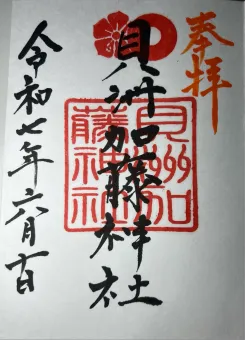 奉拝
貝洲加藤神社
令和七年六月十日
貝洲加
藤神社